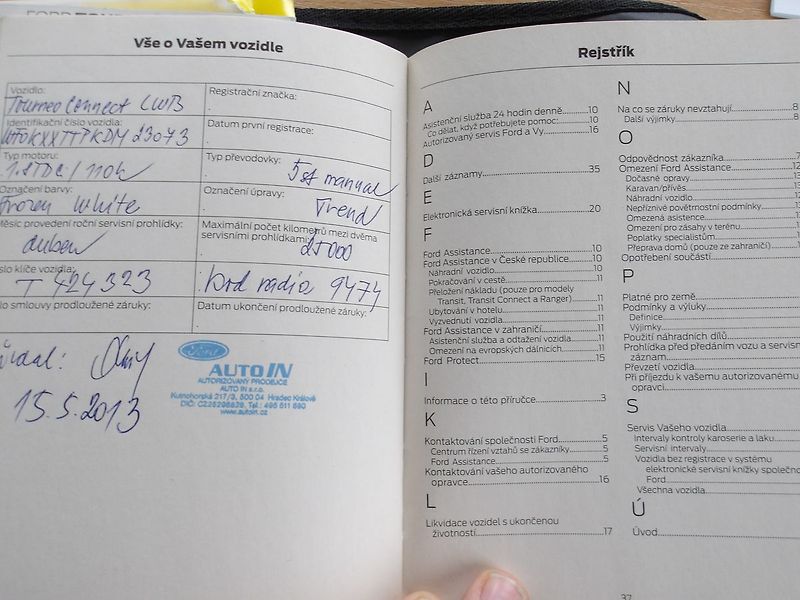 Vše o Vašem vozidle
Vozidlo:
Tourneo Connect LWB
Registrační značka:
Identifikační číslo vozidla:
Datum první registrace:
Typ motoru:
Typ převodovky:
5st manual
Označení barvy:
Frozen White
Označení úpravy:
Trend
Měsíc provedení roční servisní prohlídky:
duben
Maximální počet kilometrů mezi dvěma
servisními prohlídkami:
25000
číslo klíče vozidla:
T 424323
kod radia 9474
číslo smlouvy prodloužené záruky:
Datum ukončení prodloužené záruky:
15.5.2013
Ford
AUTO IN
AUTORIZOVANÝ PRODEJCE
AUTO IN s.r.o.
Kutnohorská 217/3, 500 04 Hradec Králové
www.autoin.cz
Rejstřík
A
Asistenční služba 24 hodin denně 10
Co dělat, když potřebujete pomoc: 10
Autorizovaný servis Ford a Vy 16
D
Další záznamy 35
E
Elektronická servisní knížka 20
F
Ford Assistance 10
Ford Assistance v České republice 10
Náhradní vozidlo 10
Pokračování v cestě 11
Přeložení nákladu (pouze pro modely
Transit, Transit Connect a Ranger) 11
Ubytování v hotelu 11
Vyzvednutí vozidla 11
Ford Assistance v zahraničí 11
Asistenční služba a odtažení vozidla 11
Omezení na evropských dálnicích 11
Ford Protect 15
I
Informace o této příručce 3
K
Kontaktování společnosti Ford 5
Centrum řízení vztahů se zákazníky 5
Ford Assistance 5
Kontaktování vašeho autorizovaného
opravce 16
L
Likvidace vozidel s ukončenou
životností 17
N
Na co se záruky nevztahují 8
Další výjimky 8
O
Odpovědnost zákazníka 7
Omezení Ford Assistance 12
Dočasné opravy 13
Karavan/přívěs
Náhradní vozidlo
Nepříznivé povětrnostní podmínky
Omezená asistence
Omezení pro zásahy v terénu
Poplatky specialistům
Přeprava domů (pouze ze zahraničí)
Opotřebení součástí
P
Platné pro země
Podmínky a výluky
Definice
Výjimky
Použití náhradních dílů
Prohlídka před předáním vozu a servisní
záznam
Převzetí vozidla
Při příjezdu k vašemu autorizovanému
opravci
S
Servis Vašeho vozidla
Intervaly kontroly karoserie a laku
Servisní intervaly
Vozidla bez registrace v systému
elektronické servisní knížky společnosti
Ford
Všechna vozidla
Ú
Úvod
37